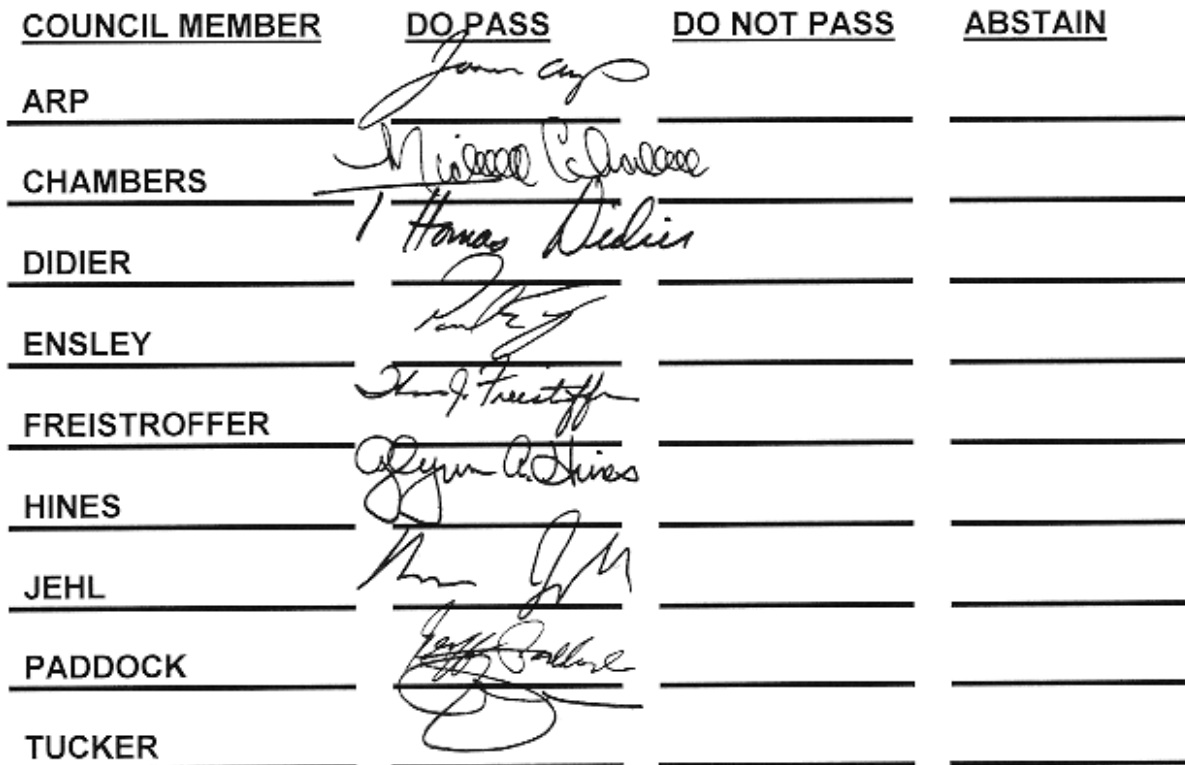 COUNCIL MEMBER DO PASS DO NOT PASS ABSTAIN
ARP
CHAMBERS
DIDIER Thomas Didier
ENSLEY
FREISTROFFER
HINES Glynn A. Hines
JEHL
PADDOCK Jeff Paddock
TUCKER